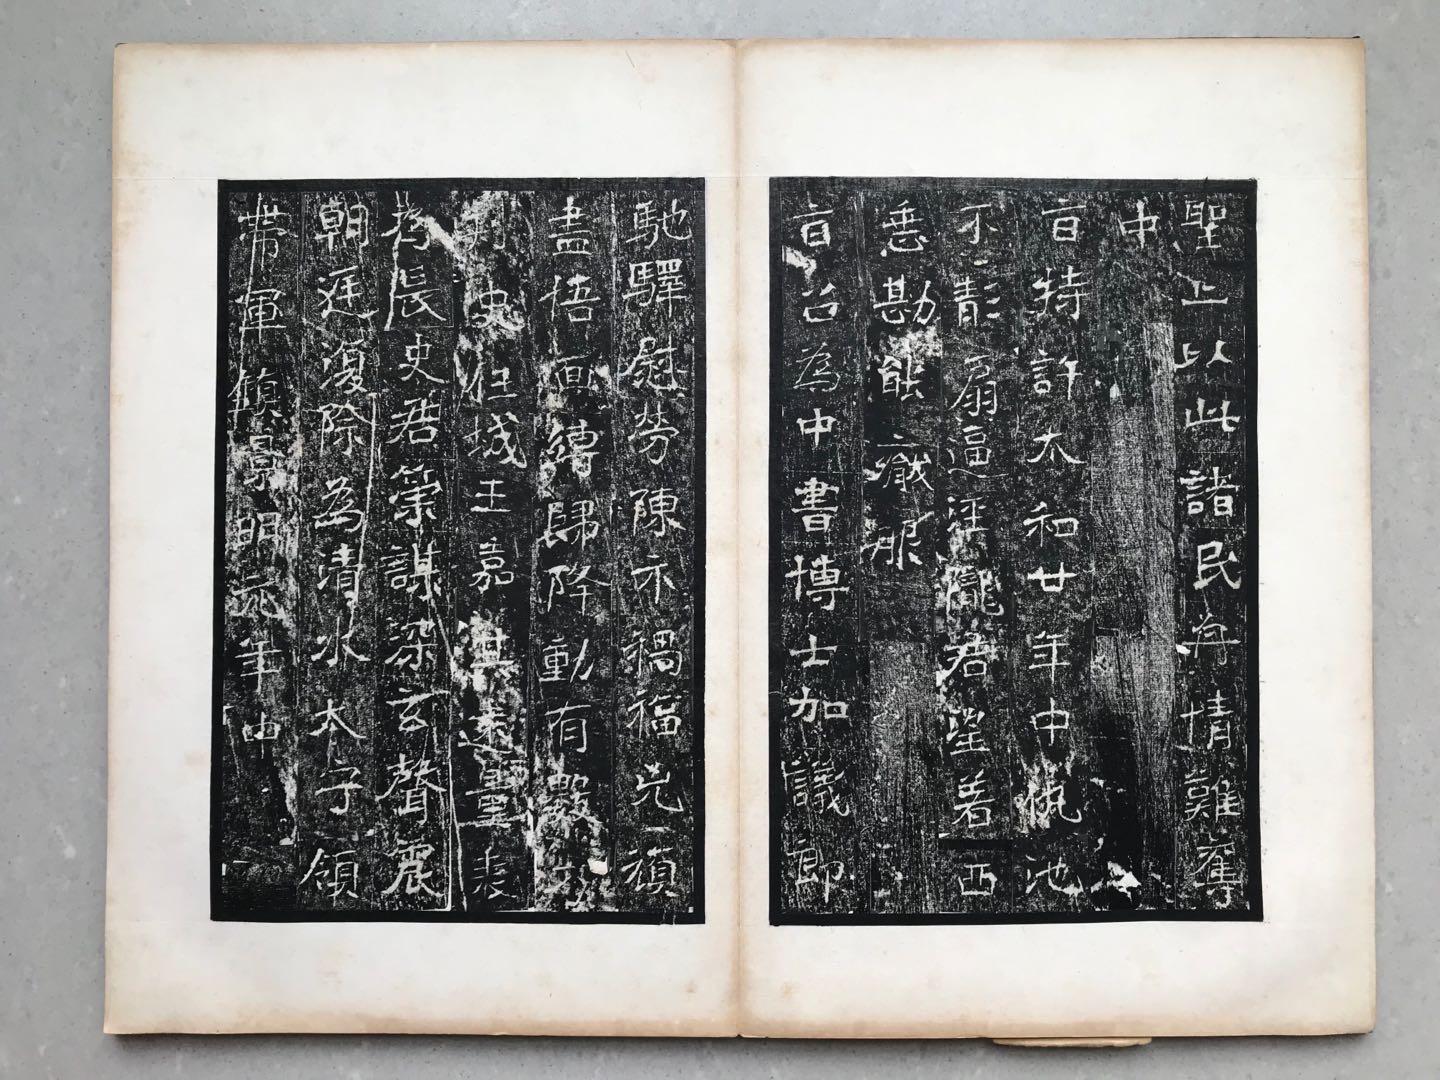 聖上以此諸民丹情難奪
中
旨特許太和廿年中仇池
不靖扇逼涇隴君望著西
垂勘能厭服
旨召為中書博士加議郎
馳驛慰勞陳示禍福兇頑
盡悟面縛歸降動有數万
刺史任城王嘉其遠量表
為長史君策謀深玄聲震
朝廷復除為清水太守領
帶軍鎮景明元年中